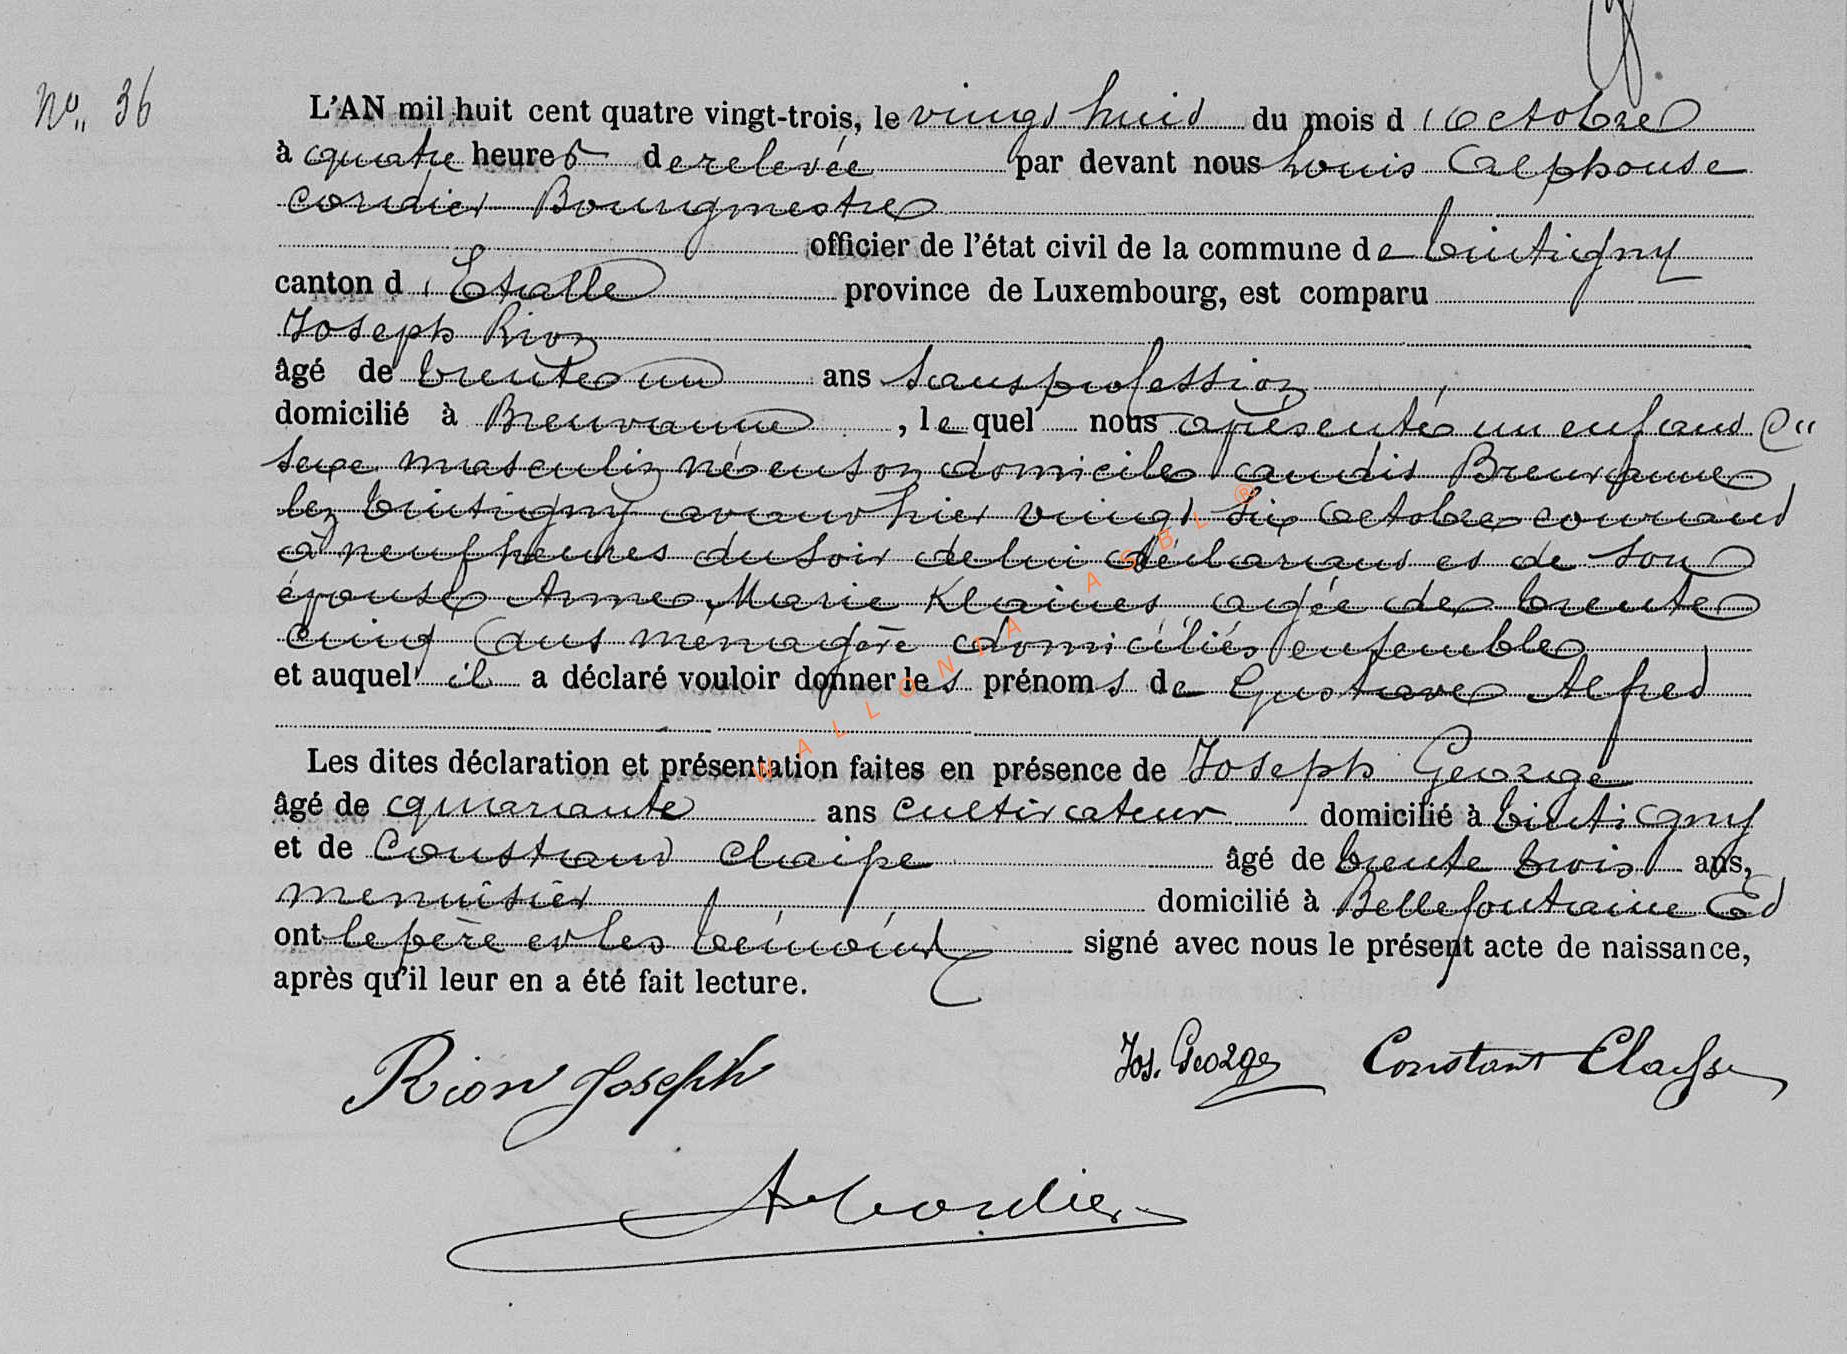 N° 36
L'AN mil huit cent quatre vingt-trois, le vingt huit du mois d'octobre
à quatre heures de relevée par devant nous Louis Alphonse
Cordier Bourgmestre
officier de l'état civil de la commune de tintigny
canton d'Etalle province de Luxembourg, est comparu
Joseph Rion
âgé de trente un ans sans profession
domicilié à Breuvanne, lequel nous a présenté un enfant du
sexe masculin né en son domicile audit Breuvanne
lez tintigny avant hier vingt six octobre courant
à neuf heures du soir de lui déclarant et de son
épouse Anne Marie Klaines agée de trente
cinq ans menagère domiciliés ensemble
et auquel il a déclaré vouloir donner les prénoms de Gustave Alfred
Les dites déclaration et présentation faites en présence de Joseph George
âgé de quarante ans cultivateur domicilié à tintigny
et de Constant Claisse âgé de trente trois ans,
menuisier domicilié à Bellefontaine Et
ont le père et les témoins signé avec nous le présent acte de naissance,
après qu'il leur en a été fait lecture.
Rion Joseph Jos. George Constant Claisse
A Cordier
WALLONIA ASBL ®